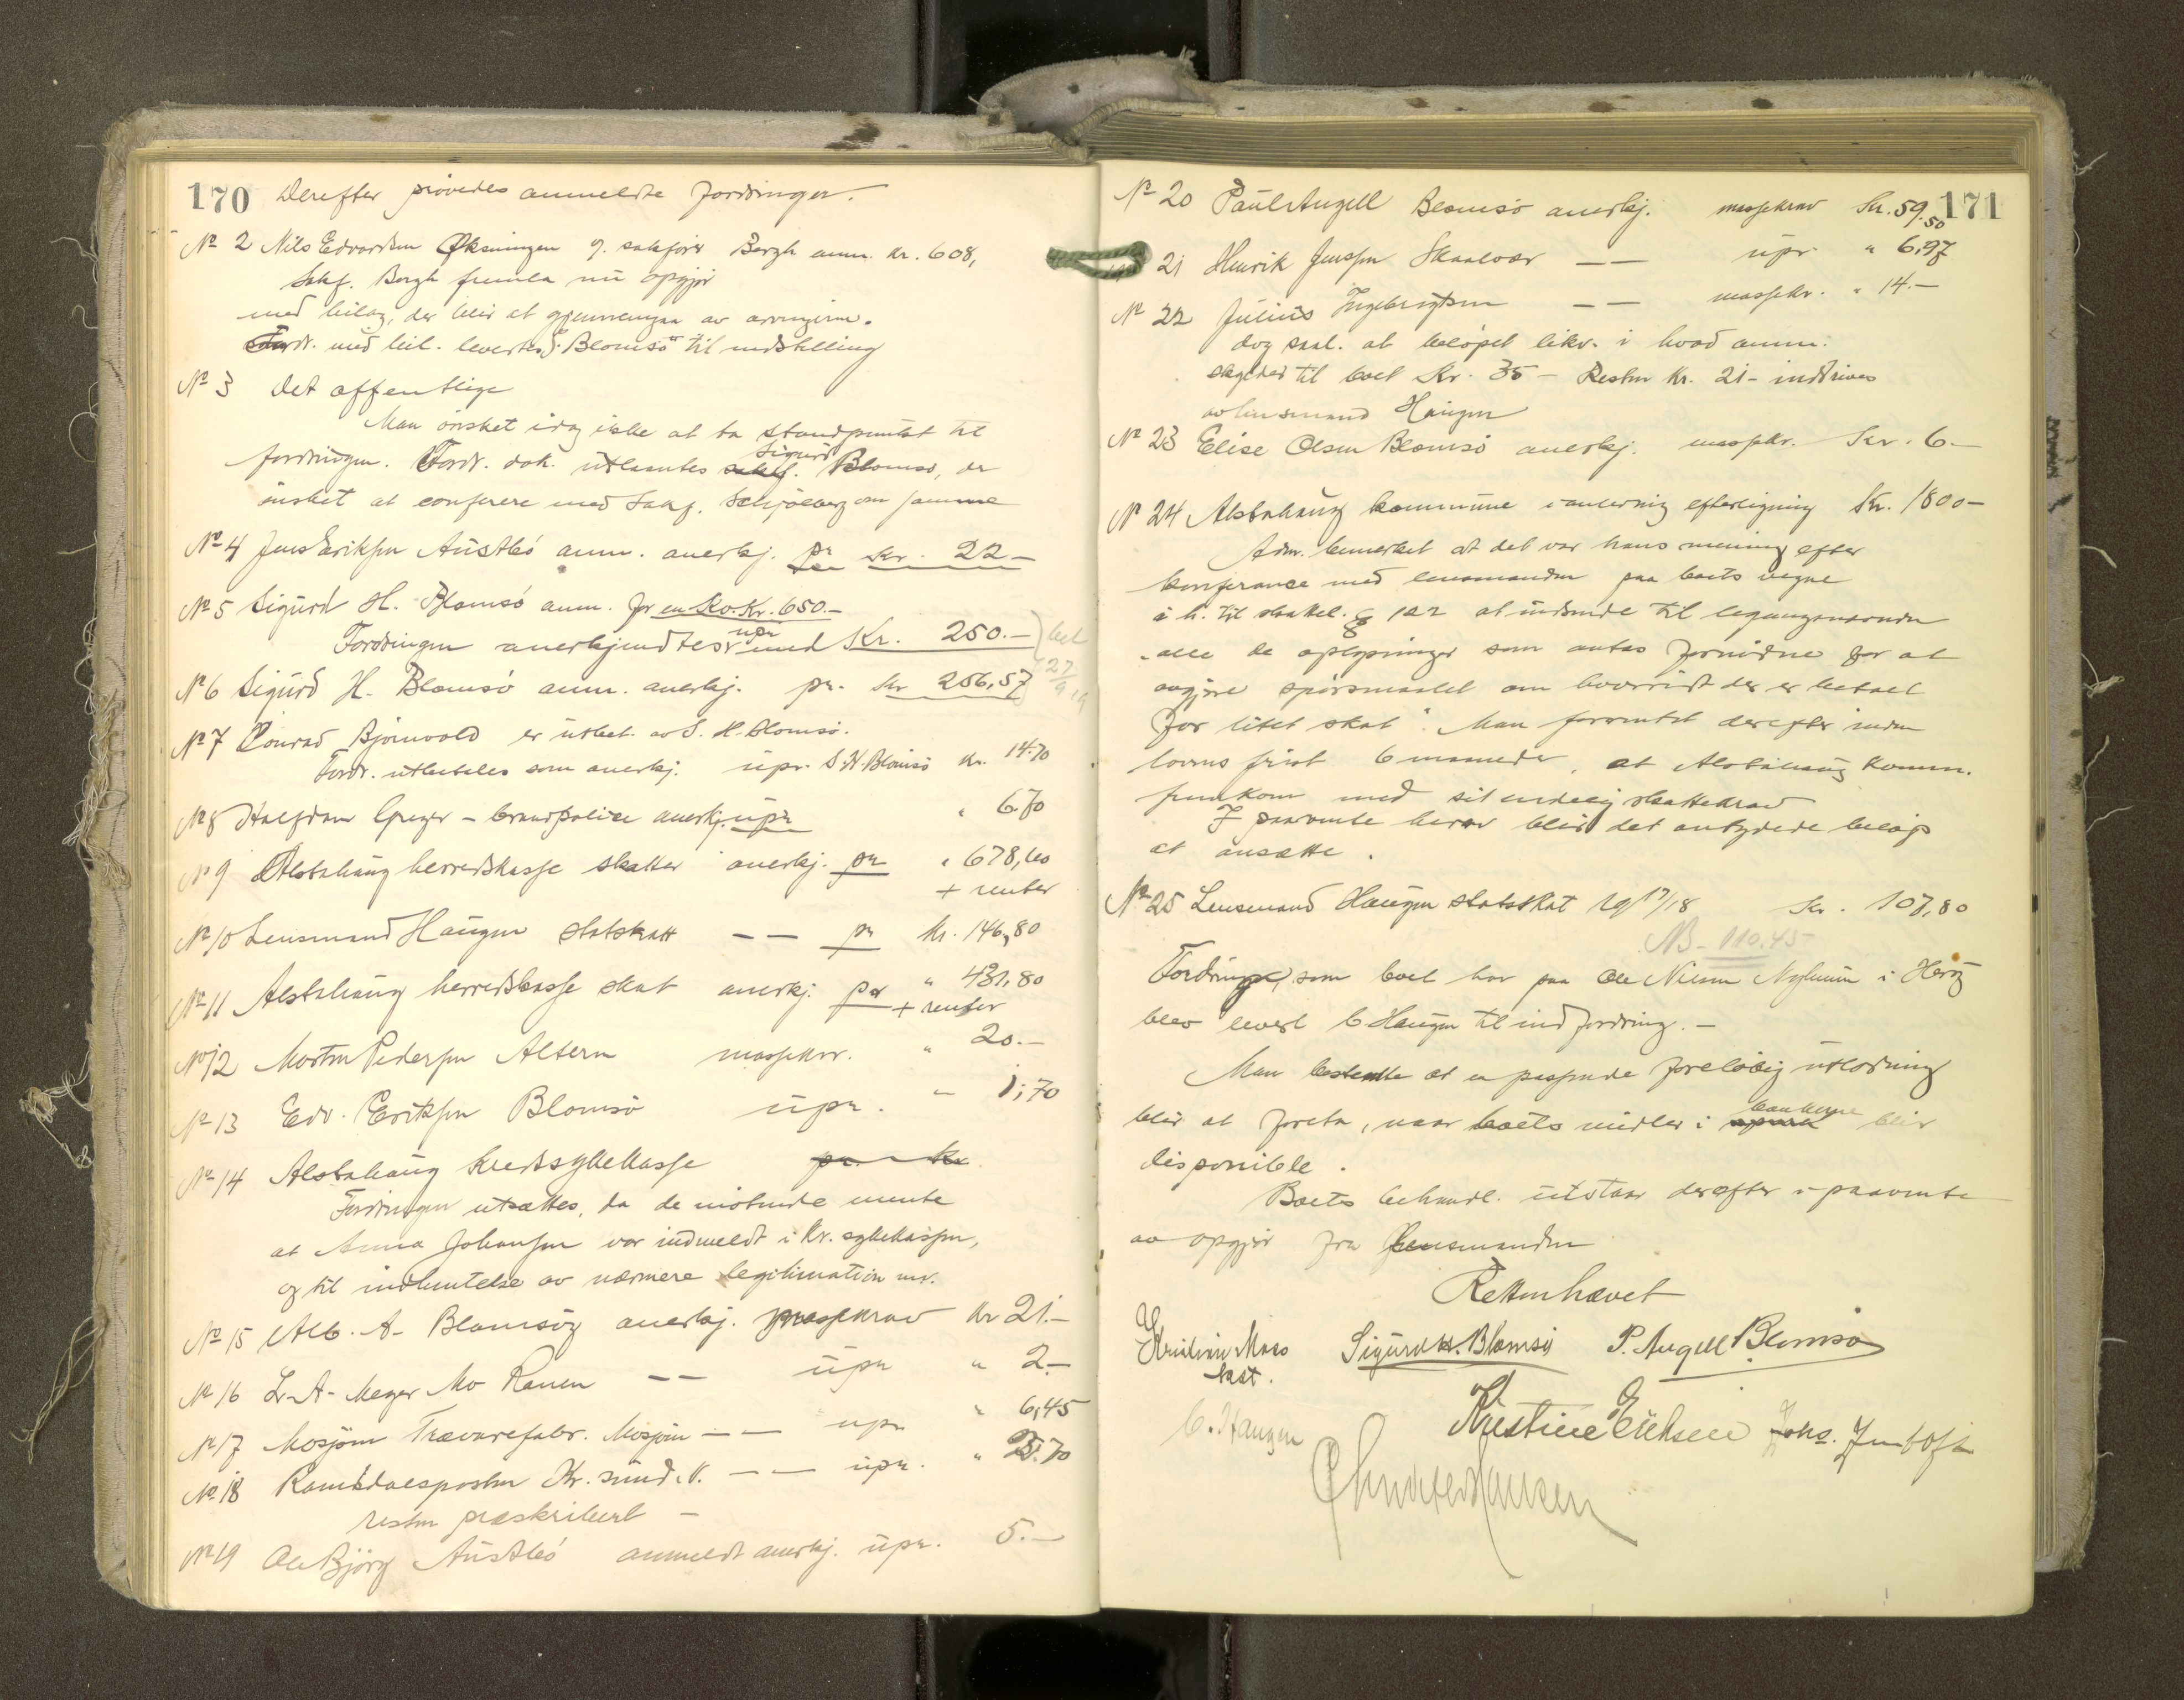 170 Derefter prövedes anmeldte fordringer.
No 2 Nils Edvardsen Öksningen g. sakförer Bergh anm. kr. 608,
Sakf. Bergh fremla nu opgjör
med bilag, der blir at gjennemgaa av arvingerne.
Fordr. med bil. levertes S. Blomsö til indstilling
No 3 Det offentlige
Man önsket idag ikke at ta standpunkt til
fordringen. Fordr. dok. utlaantes Sigurd Blomsö, der
önsket at conferere med Sakf. Schjölberg om samme
No 4 Jens Eriksen Austbö anm. anerkj. pr kr. 22-
No 5 Sigurd H. Blomsö anm. for en Ko. Kr. 650.-
Fordringen anerkjendtes upr med Kr. 250.- bet
No 6 Sigurd H. Blomsö anm. anerkj. pr. kr 256,57 27/9 19
No 7 Conrad Björnvold er utbet. av S. H. Blomsö.
Fordr. utbetales som anerkj. upr. S. H. Blomsö kr. 14.70
No 8 Halfdan Greger - brandpolice anerkj. upr " 6.70
No 9 Alstahaug herredskasse skatter anerkj. pr " 678,60
+ renter
No 10 Lensmand Haugen statskatt — — pr kr. 146,80
No 11 Alstahaug herredskasse skat anerkj. pr " 431,80
+ renter
No 12 Morten Pedersen Altern massekr. " 20.-
No 13 Edv. Eriksen Blomsö upr. " 1,70
No 14 Alstahaug Kredssykekasse pr. kr
Fordringen utsættes, da de mötende mente
at Anna Johansen var indmeldt i Kr. sykekassen,
og til indhentelse av nærmere legitimation mv.
No 15 Alb. A. Blomsö anerkj. massekrav kr 21.-
No 16 L. A. Meyer Mo Ranen — — upr " 2.-
No 17 Mosjöen Trævarefabr. Mosjöen — — upr " 6,45
No 18 Romsdalsposten Kr. sund. N. — — upr. " 3.70
resten præskribert -
No 19 Ole Björg Austbö anmeldt anerkj. upr. 5.-
171
No 20 Paul Angell Blomsö anerkj. massekrav Kr. 59.50
21 Henrik Jenssen Skaalvær — — upr " 6,97
No 22 Julius Ingebrigtsen — — massekr. " 14.-
dog saal. at belöpet likv. i hvad anm.
skylder til boet Kr. 35 - Resten kr. 21 - inddrives
av lensmand Haugen
No 23 Elise Olsen Blomsö anerkj. massekr. Kr. 6.-
No 24 Alstahaug kommune i anledning efterligning Kr. 1800-
Adm. bemerket at det var hans mening efter
konferance med lensmanden paa boets vegne
i h. til skattel. § 122 at indsende til ligningsnævnden
alle de oplysninger som antas fornödne for at
avgjöre spörsmaalet om hvorvidt der er betalt
for litet skat. Man forventet derefter inden
lovens frist 6 maaneder, at Alstahaug komm.
fremkom med sit endelig skattekrav
I paavente herav blir det antydede belöp
at ansætte.
No 25 Lensmand Haugen statsskat 1917/18 Kr. 107,80
NB - 110.45
Fordringen, som boet har paa Ole Nilsen i Herö
blev levert C Haugen til indfordring. -
Man bestemte at en passende forelöbig utlodning
blir at foreta, naar boets midler i bankerne blir
disponible.
Boets behandl. utstaar derefter i paavente
av opgjör fra lensmanden
Retten hævet
Kristian Moes Sigurd H. Blomsö P. Angell Blomsö
kst.
C. Haugen Kristine Eriksen Johs.